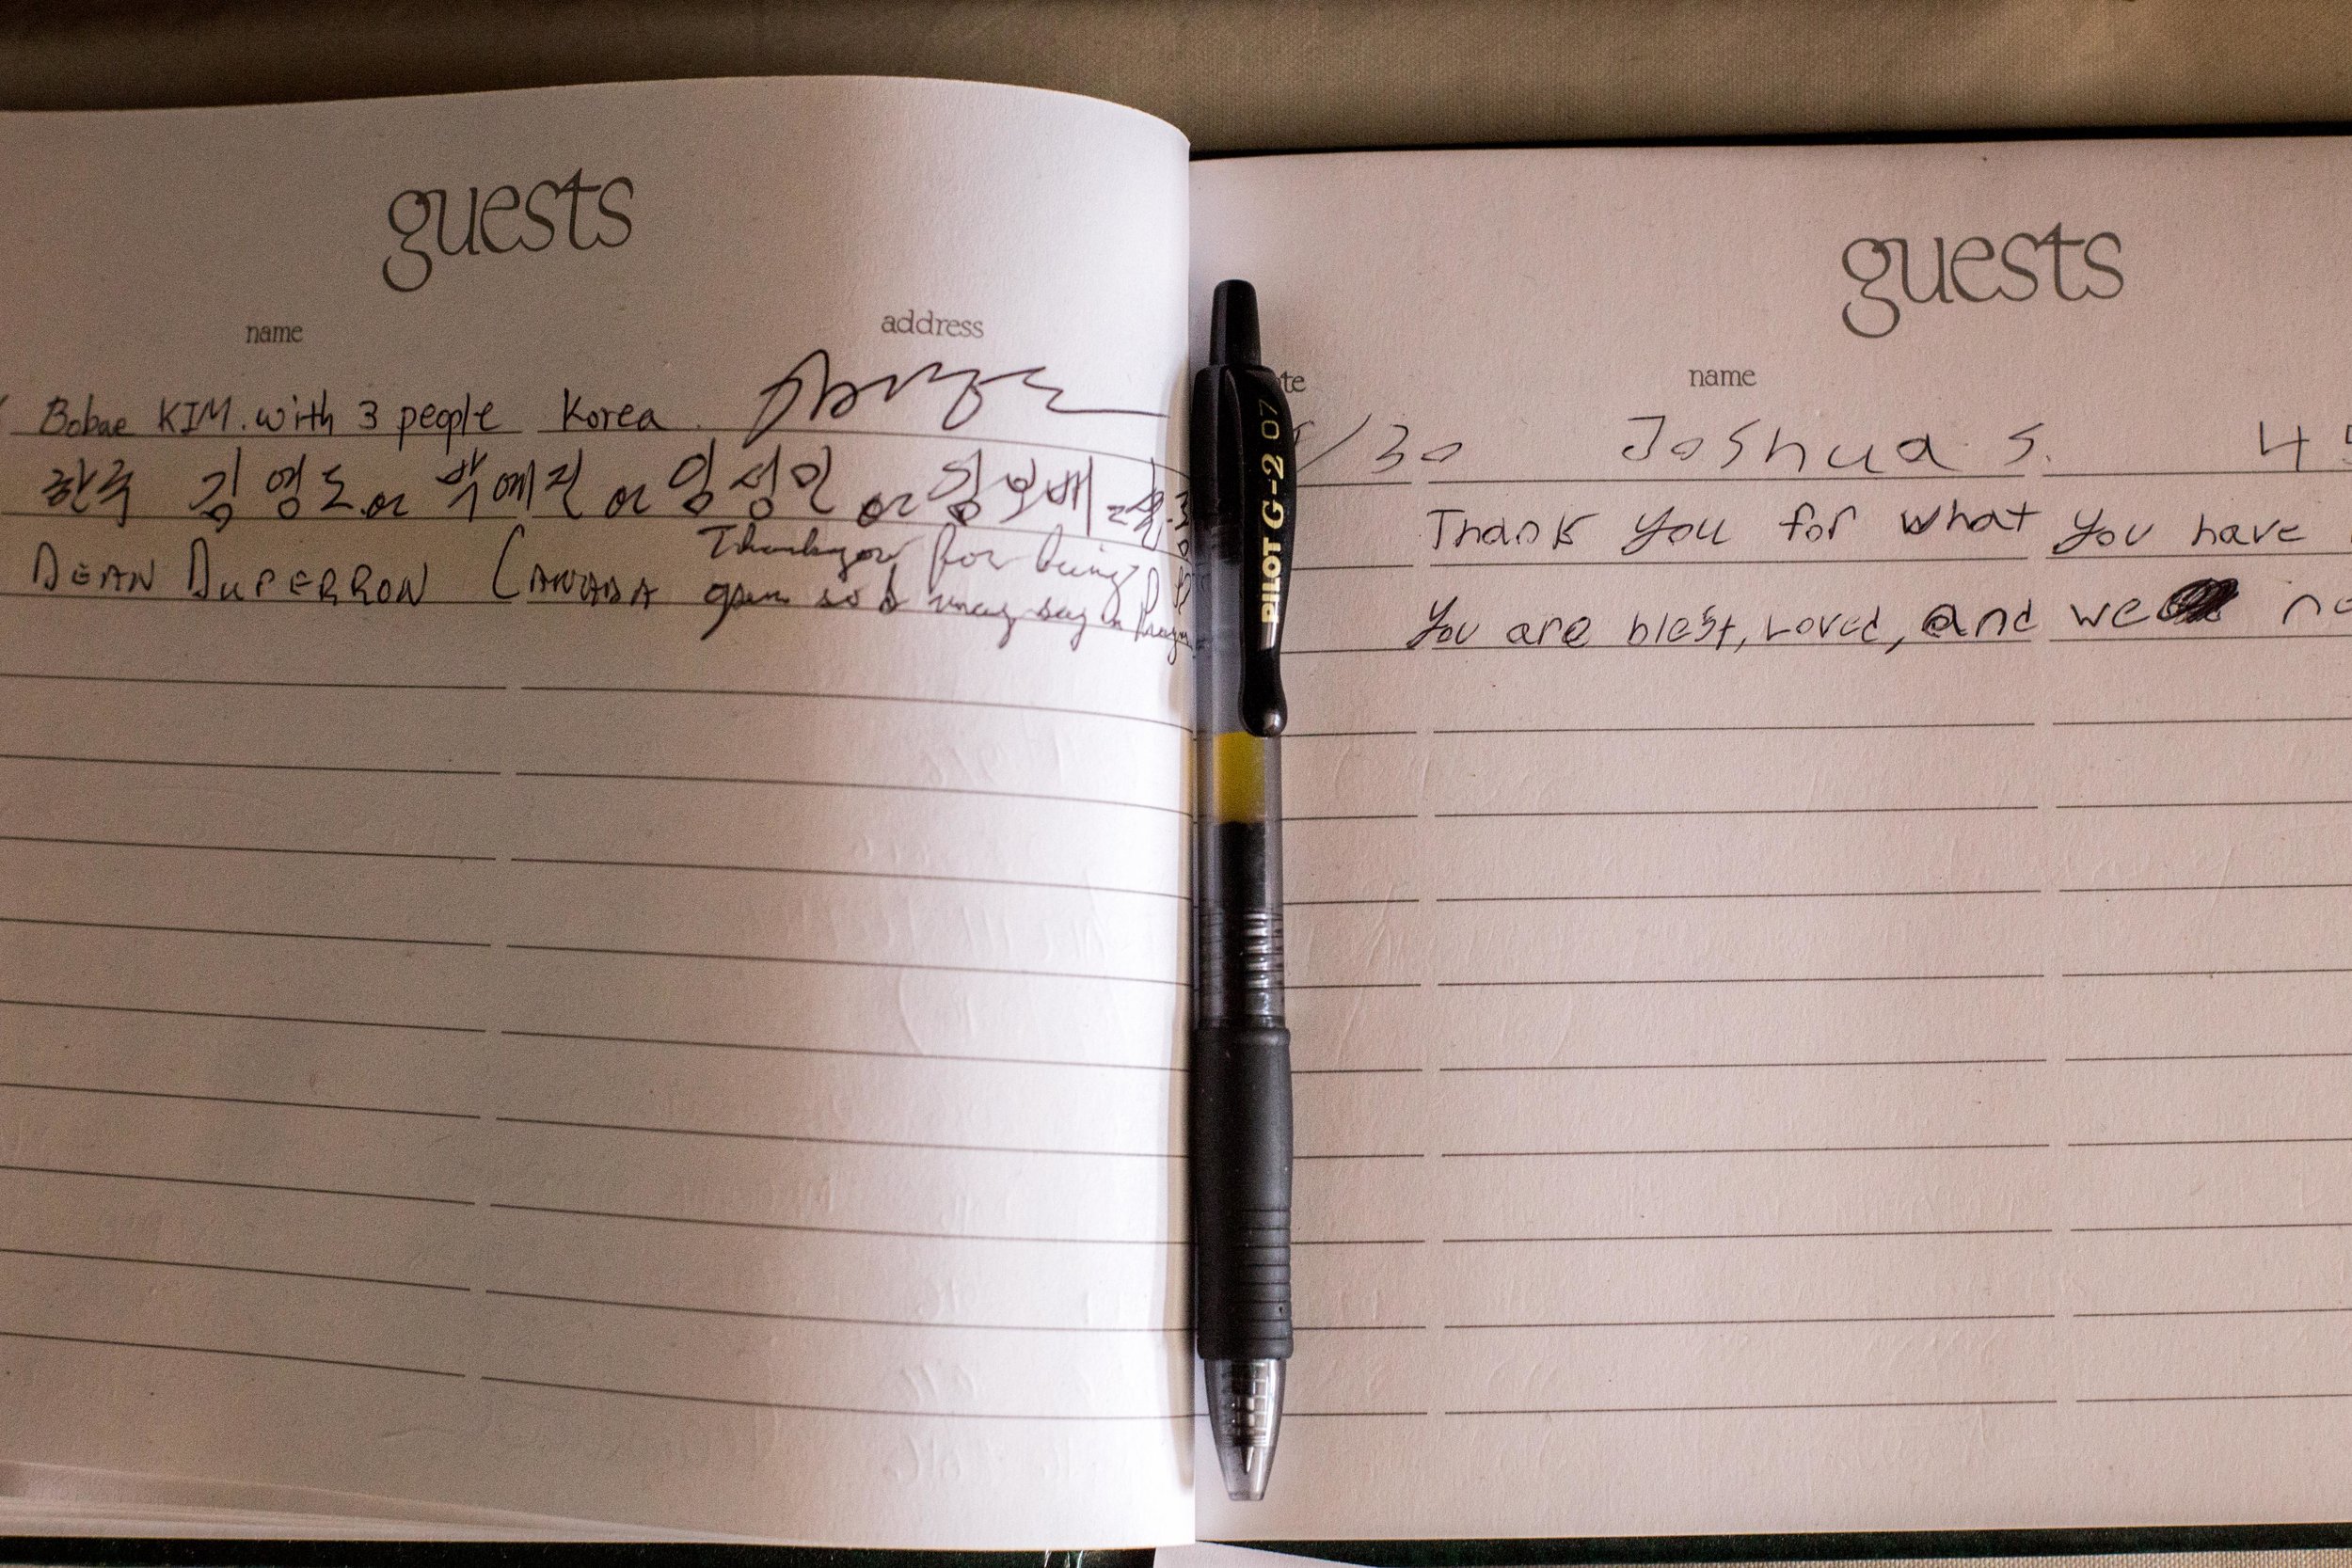 guests
name
address
Bobae KIM. with 3 people Korea
한국 김영도or 박예진 or 임성민 or 김보배
DEAN DUPERRON CANADA Thank you for being
open so I may say a Prayer
PILOT G-2 07
guests
name
/30 Joshua S. 45
Thank you for what you have
You are blest, Loved, and we no